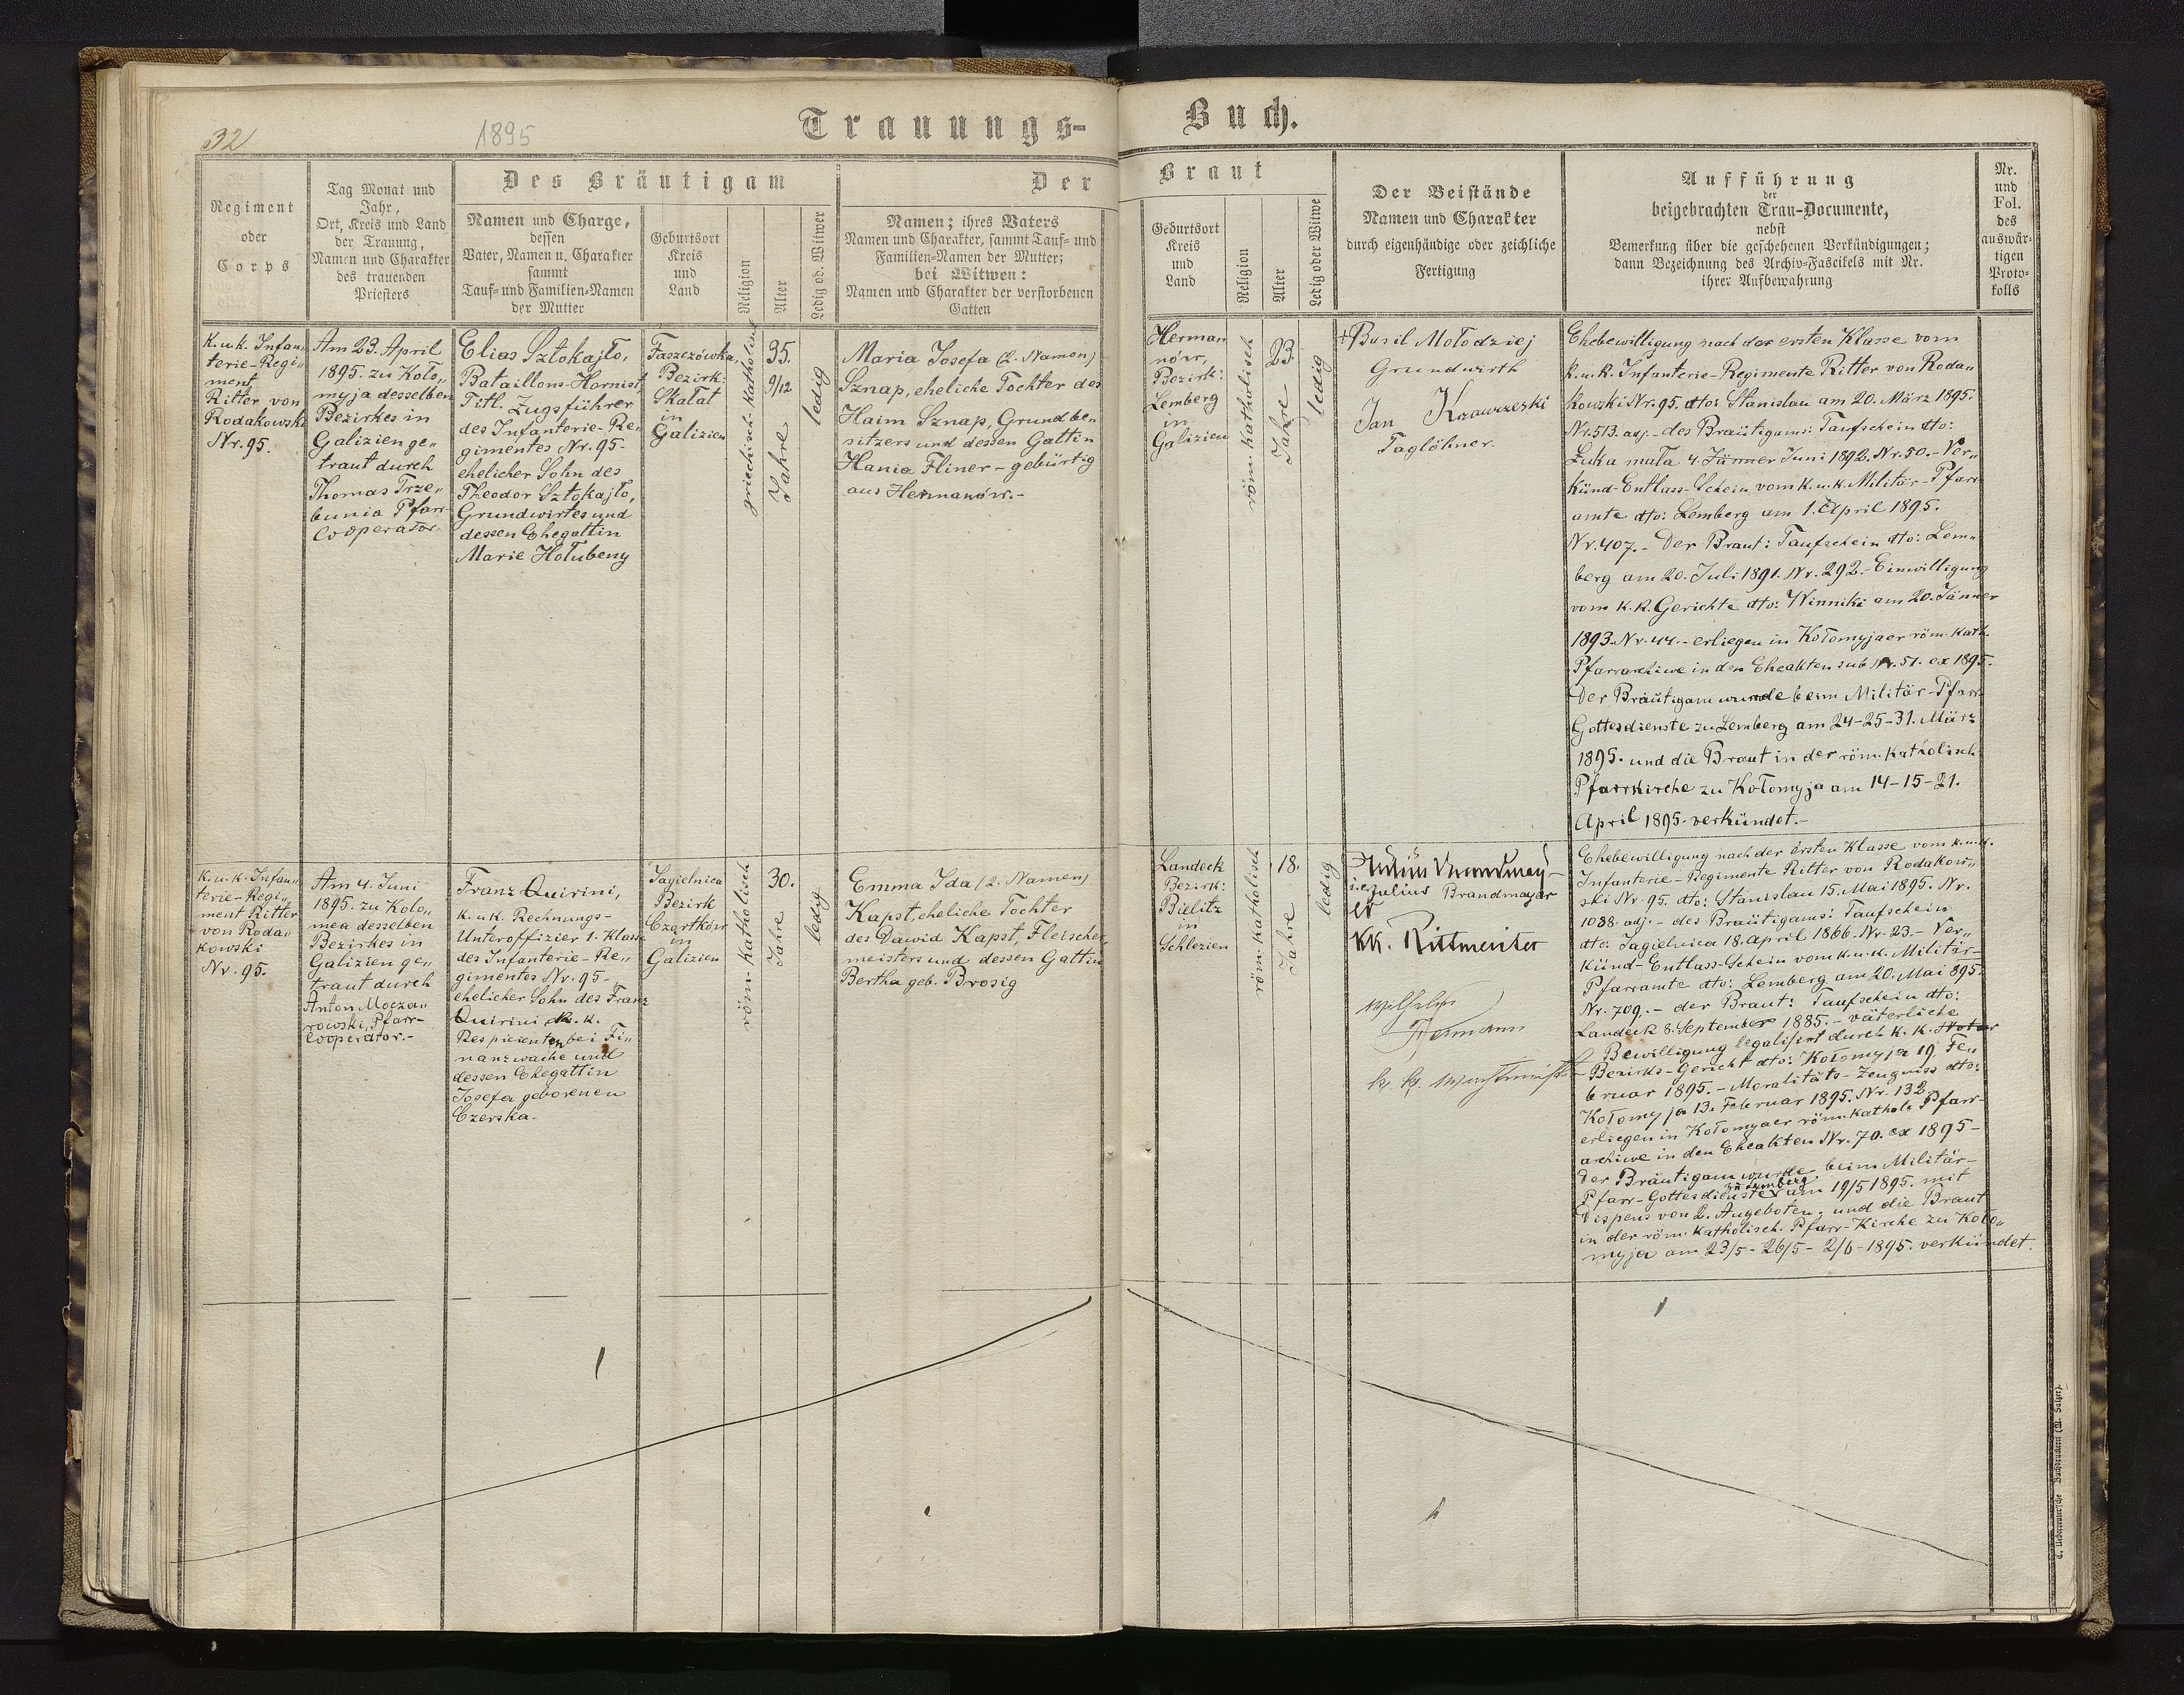 32
1895
Trauungs-
Buch.
Regiment
oder
Corps
Tag Monat und
Jahr,
Ort, Kreis und Land
der Trauung,
Namen und Charakter
des trauenden
Priesters
Des Bräutigam
Namen und Charge,
dessen
Vater, Namen u. Charakter
sammt
Tauf- und Familien-Namen
der Mutter
Geburtsort
Kreis
und
Land
Religion
Alter
Ledig od. Witwer
Der
Namen; ihres Vaters
Namen und Charakter, sammt Tauf- und
Familien-Namen der Mutter;
bei Witwen:
Namen und Charakter der verstorbenen
Gatten
Braut
Geburtsort
Kreis
und
Land
Religion
Alter
Ledig oder Witwe
Der Beistände
Namen und Charakter
durch eigenhändige oder zeichliche
Fertigung
Aufführung
der
beigebrachten Trau-Documente,
nebst
Bemerkung über die geschehenen Verkündigungen;
dann Bezeichnung des Archiv-Fascikels mit Nr.
ihrer Aufbewahrung
Nr.
und
Fol.
des
auswär-
tigen
Proto-
kolls
K. u. k. Infan„
terie-Regi„
ment
Ritter von
Rodakowski
Nr. 95.
Am 23. April
1895. zu Koło„
myja desselben
Bezirkes in
Galizien ge„
traut durch
Thomas Trze„
bunia Pfarr
Cooperator.
Elias Sztokajło,
Bataillons-Hornist,
Titl. Zugsführer
des Infanterie-Re„
gimentes Nr. 95-
ehelicher Sohn des
Theodor Sztokajło,
Grundwirtes und
dessen Ehegattin
Marie Hołubeny
Faszczówka,
Bezirk:
Skałat
in
Galizien
griechisch-katholisch
35.
9/12
Jahre
ledig
Maria Josefa (2. Namen)
Sznap, eheliche Tochter des
Haim Sznap, Grundbe„
sitzers und dessen Gattin
Hania Fliner - gebürtig
aus Hermanów.-
Herman
nów,
Bezirk:
Lemberg
in
Galizien
röm. katholisch
23.
Jahre
ledig
+Basil Mołodziej
Grundwirth
Jan Krawrzeski
Taglöhner
Ehebewilligung nach der ersten Klasse vom
k. u. k. Infanterie-Regimente Ritter von Roda„
kowski Nr. 95. dto: Stanislau am 20. März 1895.
Nr. 513. adj.- des Bräutigams: Taufschein dto:
Łuka mała 4. Jänner Juni 1892. Nr. 50.- Ver„
künd-Entlass-Schein vom k. u. k. Militär-Pfarr
amte dto: Lemberg am 1. April 1895.
Nr. 407.- Der Braut: Taufschein dto: Lem„
berg am 20. Juli 1891. Nr. 292.- Einwilligung
vom k. k. Gerichte dto: Winniki am 20. Jänner
1893. Nr. 44.- erliegen in Kołomyjaer röm. kath.
Pfarrarchive in den Eheakten sub Nr. 51. ex 1895.
Der Bräutigam wurde beim Militär-Pfarr
Gottesdienste zu Lemberg am 24-25-31. März
1895. und die Braut in der röm. katholisch.
Pfarrkirche zu Kołomyja am 14-15-21.
April 1895. verkündet.-
K. u. k. Infan„
terie-Regi„
ment Ritter
von Roda„
kowski
Nr. 95.
Am 4. Juni
1895. zu Kolo„
mea desselben
Bezirkes in
Galizien ge„
traut durch
Anton Mocza„
rowski, Pfarr-
Cooperator.-
Franz Quirini,
k. u. k. Rechnungs-
Unteroffizier 1. Klasse
des Infanterie-Re„
gimentes Nr. 95-
ehelicher Sohn des Franz
Quirini k. k.
Respicienten bei Fi„
nanzwache und
dessen Ehegattin
Josefa geborenen
Czerska.
Jagielnica
Bezirk
Czortków
in
Galizien
röm. katholisch
30.
Jahre
ledig
Emma Ida (2. Namen)
Kapst, eheliche Tochter
des Dawid Kapst, Fleischer„
meisters und dessen Gattin
Bertha geb. Brosig
Landeck
Bezirk:
Bielitz
in
Schlezien
röm. katholisch
18.
Jahre
ledig
Julius Brandmay-
i. e. Julius Brandmayer
er
KK. Rittmeister
Wilhelm
Hermann
k. k. Wachtmeister
Ehebewilligung nach der ersten Klasse vom k. u. k.
Infanterie-Regimente Ritter von Rodakow„
ski Nr. 95. dto: Stanislau 15. Mai 1895. Nr.
1088. adj.- des Bräutigams: Taufschein
dto: Jagielnica 18. April 1866. Nr. 23.- Ver„
künd-Entlass-Schein vom k. u. k. Militär-
Pfarramte dto: Lemberg am 20. Mai 895.
Nr. 709.- der Braut: Taufschein dto:
Landeck 8. September 1885.- väterliche
Bewilligung legalisirt durch k. k. Notar
Bezirks-Gericht dto: Kołomyja 19. Fe„
bruar 1895.- Moralitäts-Zeugniss dto:
Kołomyja 13. Februar 1895. Nr. 132
erliegen in Kołomyaer röm. kathol. Pfarr-
archive in den Eheakten Nr. 70. ex 1895-
Der Bräutigam wurde beim Militär-
Pfarr-Gottesdienste zu Lemberg am 19/5 1895. mit
Dispens von 2. Augeboten, und die Braut
in der röm. katholisch. Pfarr-Kirche zu Koło„
myja am 23/5-26/5-2/6-1895. verkündet.